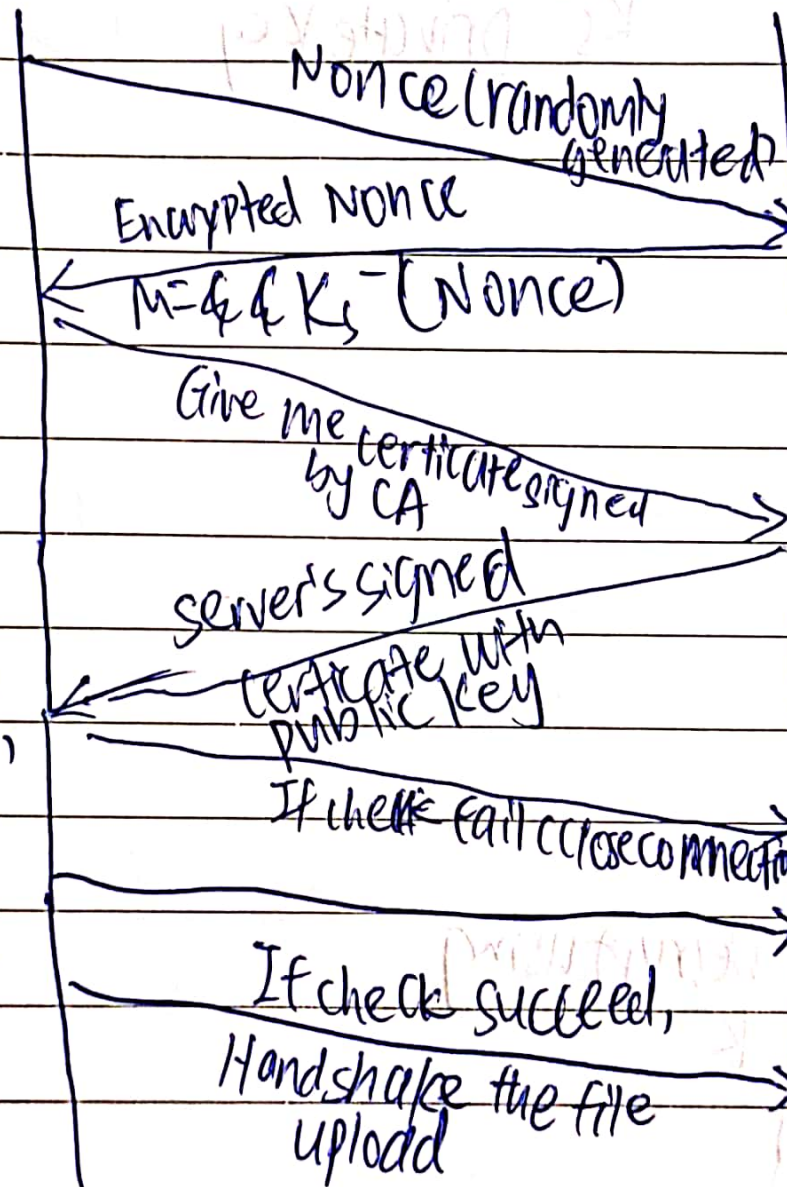 Nonce (randomly
generated)
Encrypted Nonce
M = Ks⁻ (Nonce)
Give me certicate signed
by CA
server's signed
certicate with
public key
If check fail (close connectio
If check succeed,
Handshake the file
upload